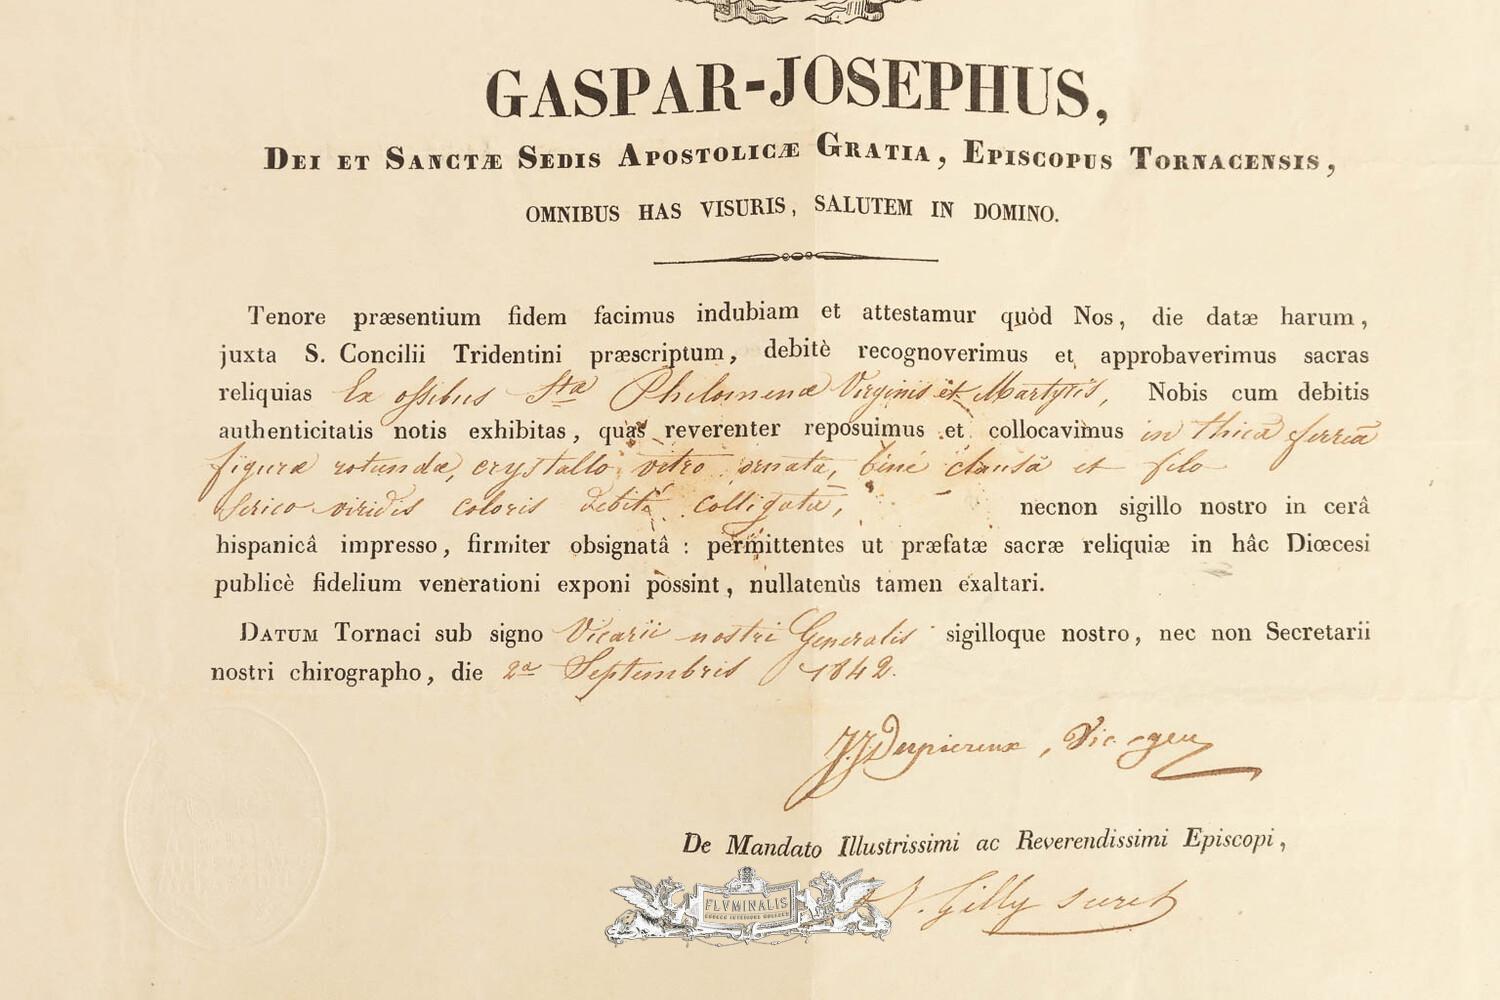 GASPAR-JOSEPHUS,
DEI ET SANCTÆ SEDIS APOSTOLICÆ GRATIA, EPISCOPUS TORNACENSIS,
OMNIBUS HAS VISURIS, SALUTEM IN DOMINO.
Tenore præsentium fidem facimus indubiam et attestamur quòd Nos, die datæ harum,
juxta S. Concilii Tridentini præscriptum, debitè recognoverimus et approbaverimus sacras
reliquias Ex ossibus Stæ Philomenæ Virginis et Martyris, Nobis cum debitis
authenticitatis notis exhibitas, quas reverenter reposuimus et collocavimus in thicâ ferreâ
figuræ rotundæ, crystallo vitro ornatâ, bine clausâ et filo
serico viridis coloris debitè colligatâ, necnon sigillo nostro in cerâ
hispanicâ impresso, firmiter obsignatâ : permittentes ut præfatæ sacræ reliquiæ in hâc Diœcesi
publicè fidelium venerationi exponi possint, nullatenùs tamen exaltari.
DATUM Tornaci sub signo Vicarii nostri Generalis sigilloque nostro, nec non Secretarii
nostri chirographo, die 2a Septembris 1842.
J.J. Despiereux, Vic. gen
De Mandato Illustrissimi ac Reverendissimi Episcopi,
J. Gilly secret
FLVMINALIS